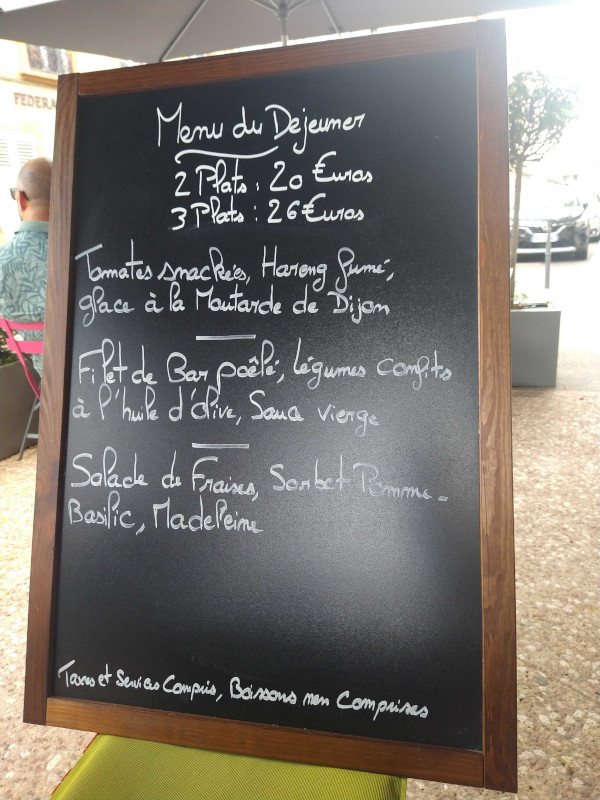 FEDERA
Menu du Dejeuner
2 Plats : 20 €uros
3 Plats : 26 €uros
Tomates snackées, Hareng fumé,
glace à la Moutarde de Dijon
Filet de Bar poêlé, légumes confits
à l'huile d'olive, Sauce vierge
Salade de Fraises, Sorbet Pomme-
Basilic, Madeleine
Taxes et Services Compris, Boissons non Comprises